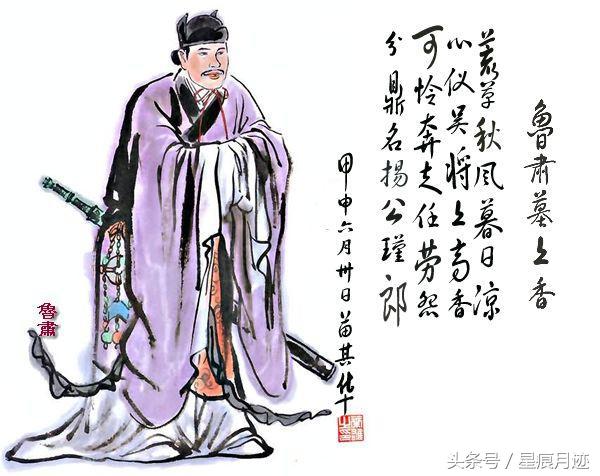 魯肅墓上香
草秋风暮日凉
心仪吴将上高香
可怜奔走任劳怨
分鼎名揚公瑾郎
甲申六月卅日苗其
魯肅
头条号 / 星痕月迹